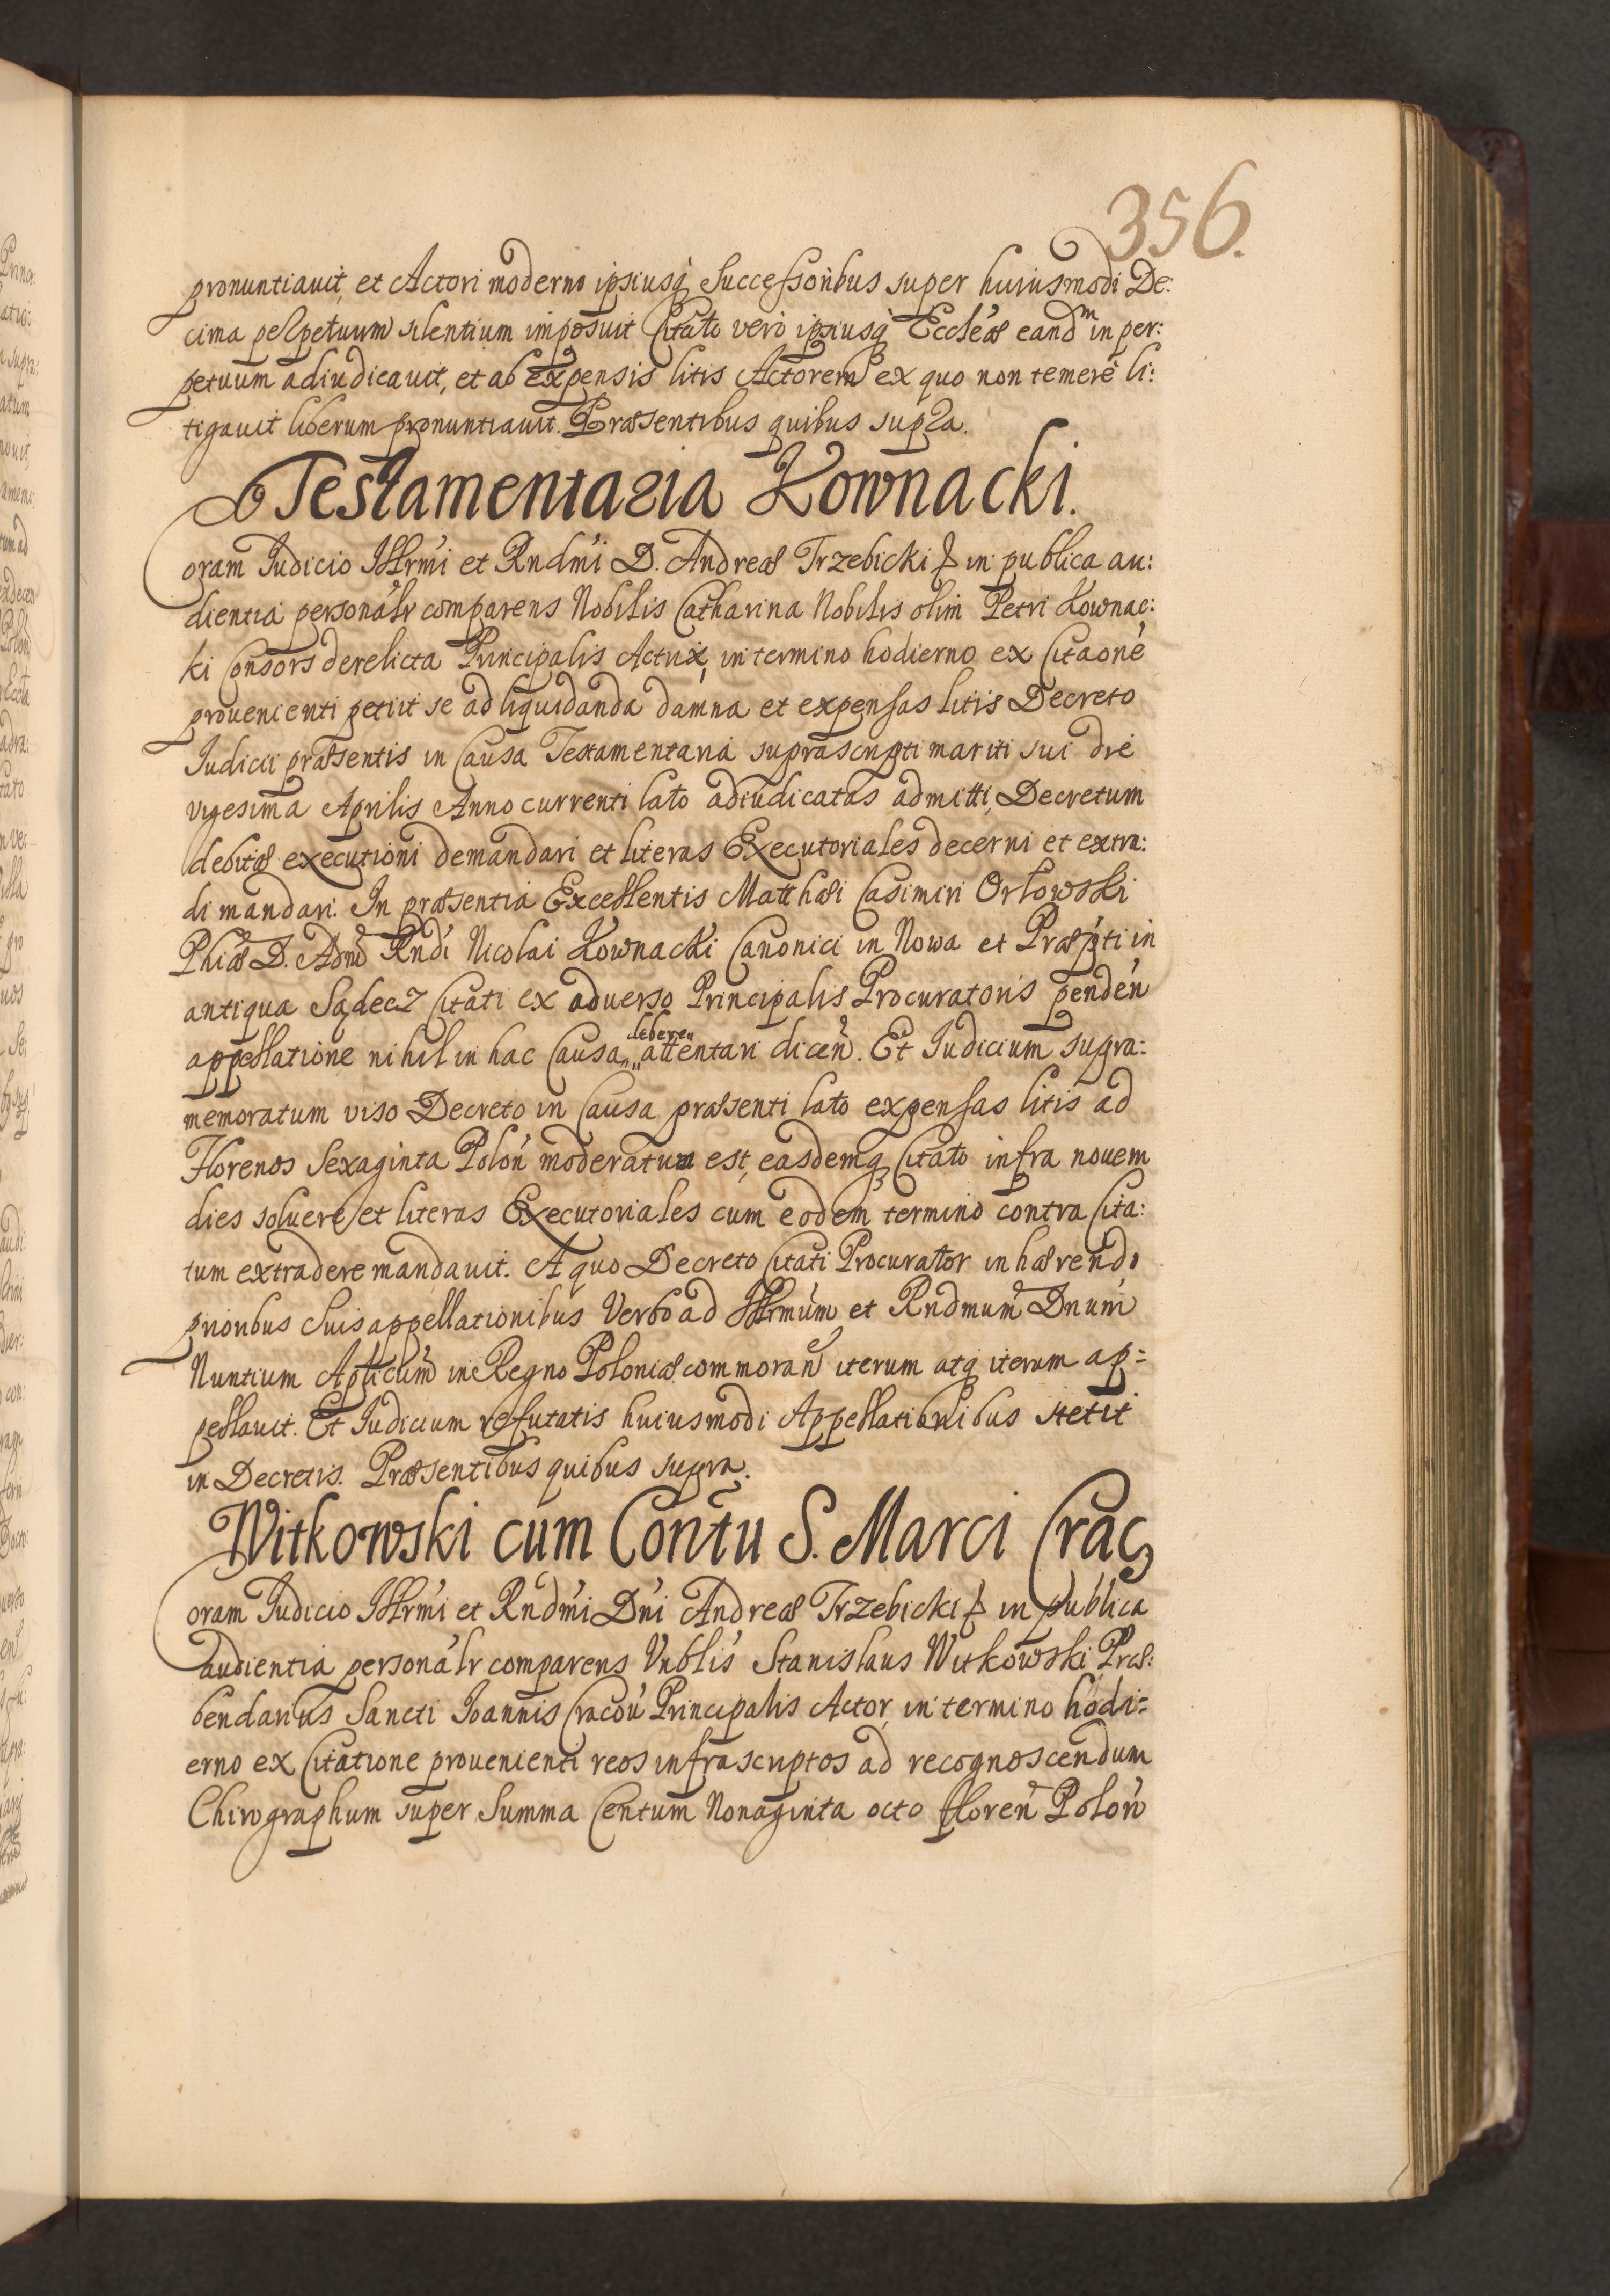 356.
pronuntiauit, et Actori moderno ipsiusq̃ Successoribus super huiusmodi De:
cima perpetuum silentium imposuit Citato vero ipsiusq̃ Eccleæ eandm in per:
petuum adiudicauit, et ab expensis litis Actorem ex quo non temere li:
tigauit liberum pronuntiauit. Præsentibus quibus supra.
Testamentaria Kownacki.
Coram Judicio Illrmi et Rndmi D. Andreæ Trzebicki & in publica au:
dientia personalr comparens Nobilis Catharina Nobilis olim Petri Kownac:
ki Consors derelicta Principalis Actrix, in termino hodierno ex Citaone
prouenienti petiit se ad liquidanda damna et expensas litis Decreto
Judicii præsentis in Causa Testamentaria suprascripti mariti sui die
vigesima Aprilis Anno currenti lato adiudicatas admitti, Decretum
debitæ executioni demandari et literas Executoriales decerni et extra:
di mandari. In præsentia Excellentis Matthæi Casimiri Orłowski
Phiæ D. Adm Rndi Nicolai Kownacki Canonici in Nowa et Præpti in
antiqua Sądecz Citati ex aduerso Principalis Procuratoris penden
appellatione nihil in hac Causa „debere„ attentari dicen. Et Judicium supra:
memoratum viso Decreto in Causa præsenti lato expensas litis ad
Florenos Sexaginta Polon moderatum est, easdemq̃ Citato infra nouem
dies soluere et literas Executoriales cum eodem termino contra Cita:
tum extradere mandauit. A quo Decreto Citati Procurator inhærendo
prioribus suis appellationibus Verbo ad Illrmum et Rndmum Dnum
Nuntium Apticum in Regno Poloniæ commoran iterum atq̃ iterum ap=
pellauit. Et Judicium refutatis huiusmodi Appellationibus stetit
in Decretis. Præsentibus quibus supra.
Witkowski cum Contu S. Marci Crac,
Coram Judicio Illrmi et Rndmi Dni Andreæ Trzebicki & in publica
audientia personalr comparens Vnblis Stanislaus Witkowski Præ:
bendarius Sancti Joannis Cracou Principalis Actor, in termino hodi=
erno ex Citatione prouenienti reos infrascriptos ad recognoscendum
Chirographum super Summa Centum Nonaginta octo floren Polon